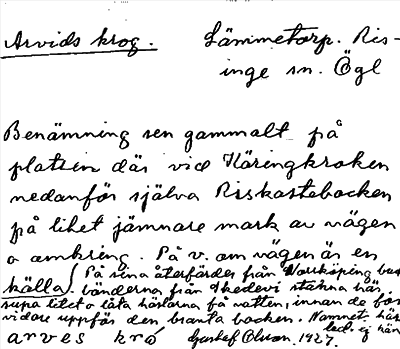 Arvids krog. Lämmetorp. Ris-
inge sn. Ögl
Benämning sen gammalt på
platsen där vid Käringkroken
nedanför själva Riskastebacken
på litet jämnare mark av vägen
o omkring. På v. om vägen är en
källa. På sina återfärder från Norrköping bru
bönderna från Skedevi stanna här,
supa litet o låta hästarna få vatten, innan de for
vidare uppför den branta backen. Namnet
led. ej
arves kró Gustaf Olsson. 1927.